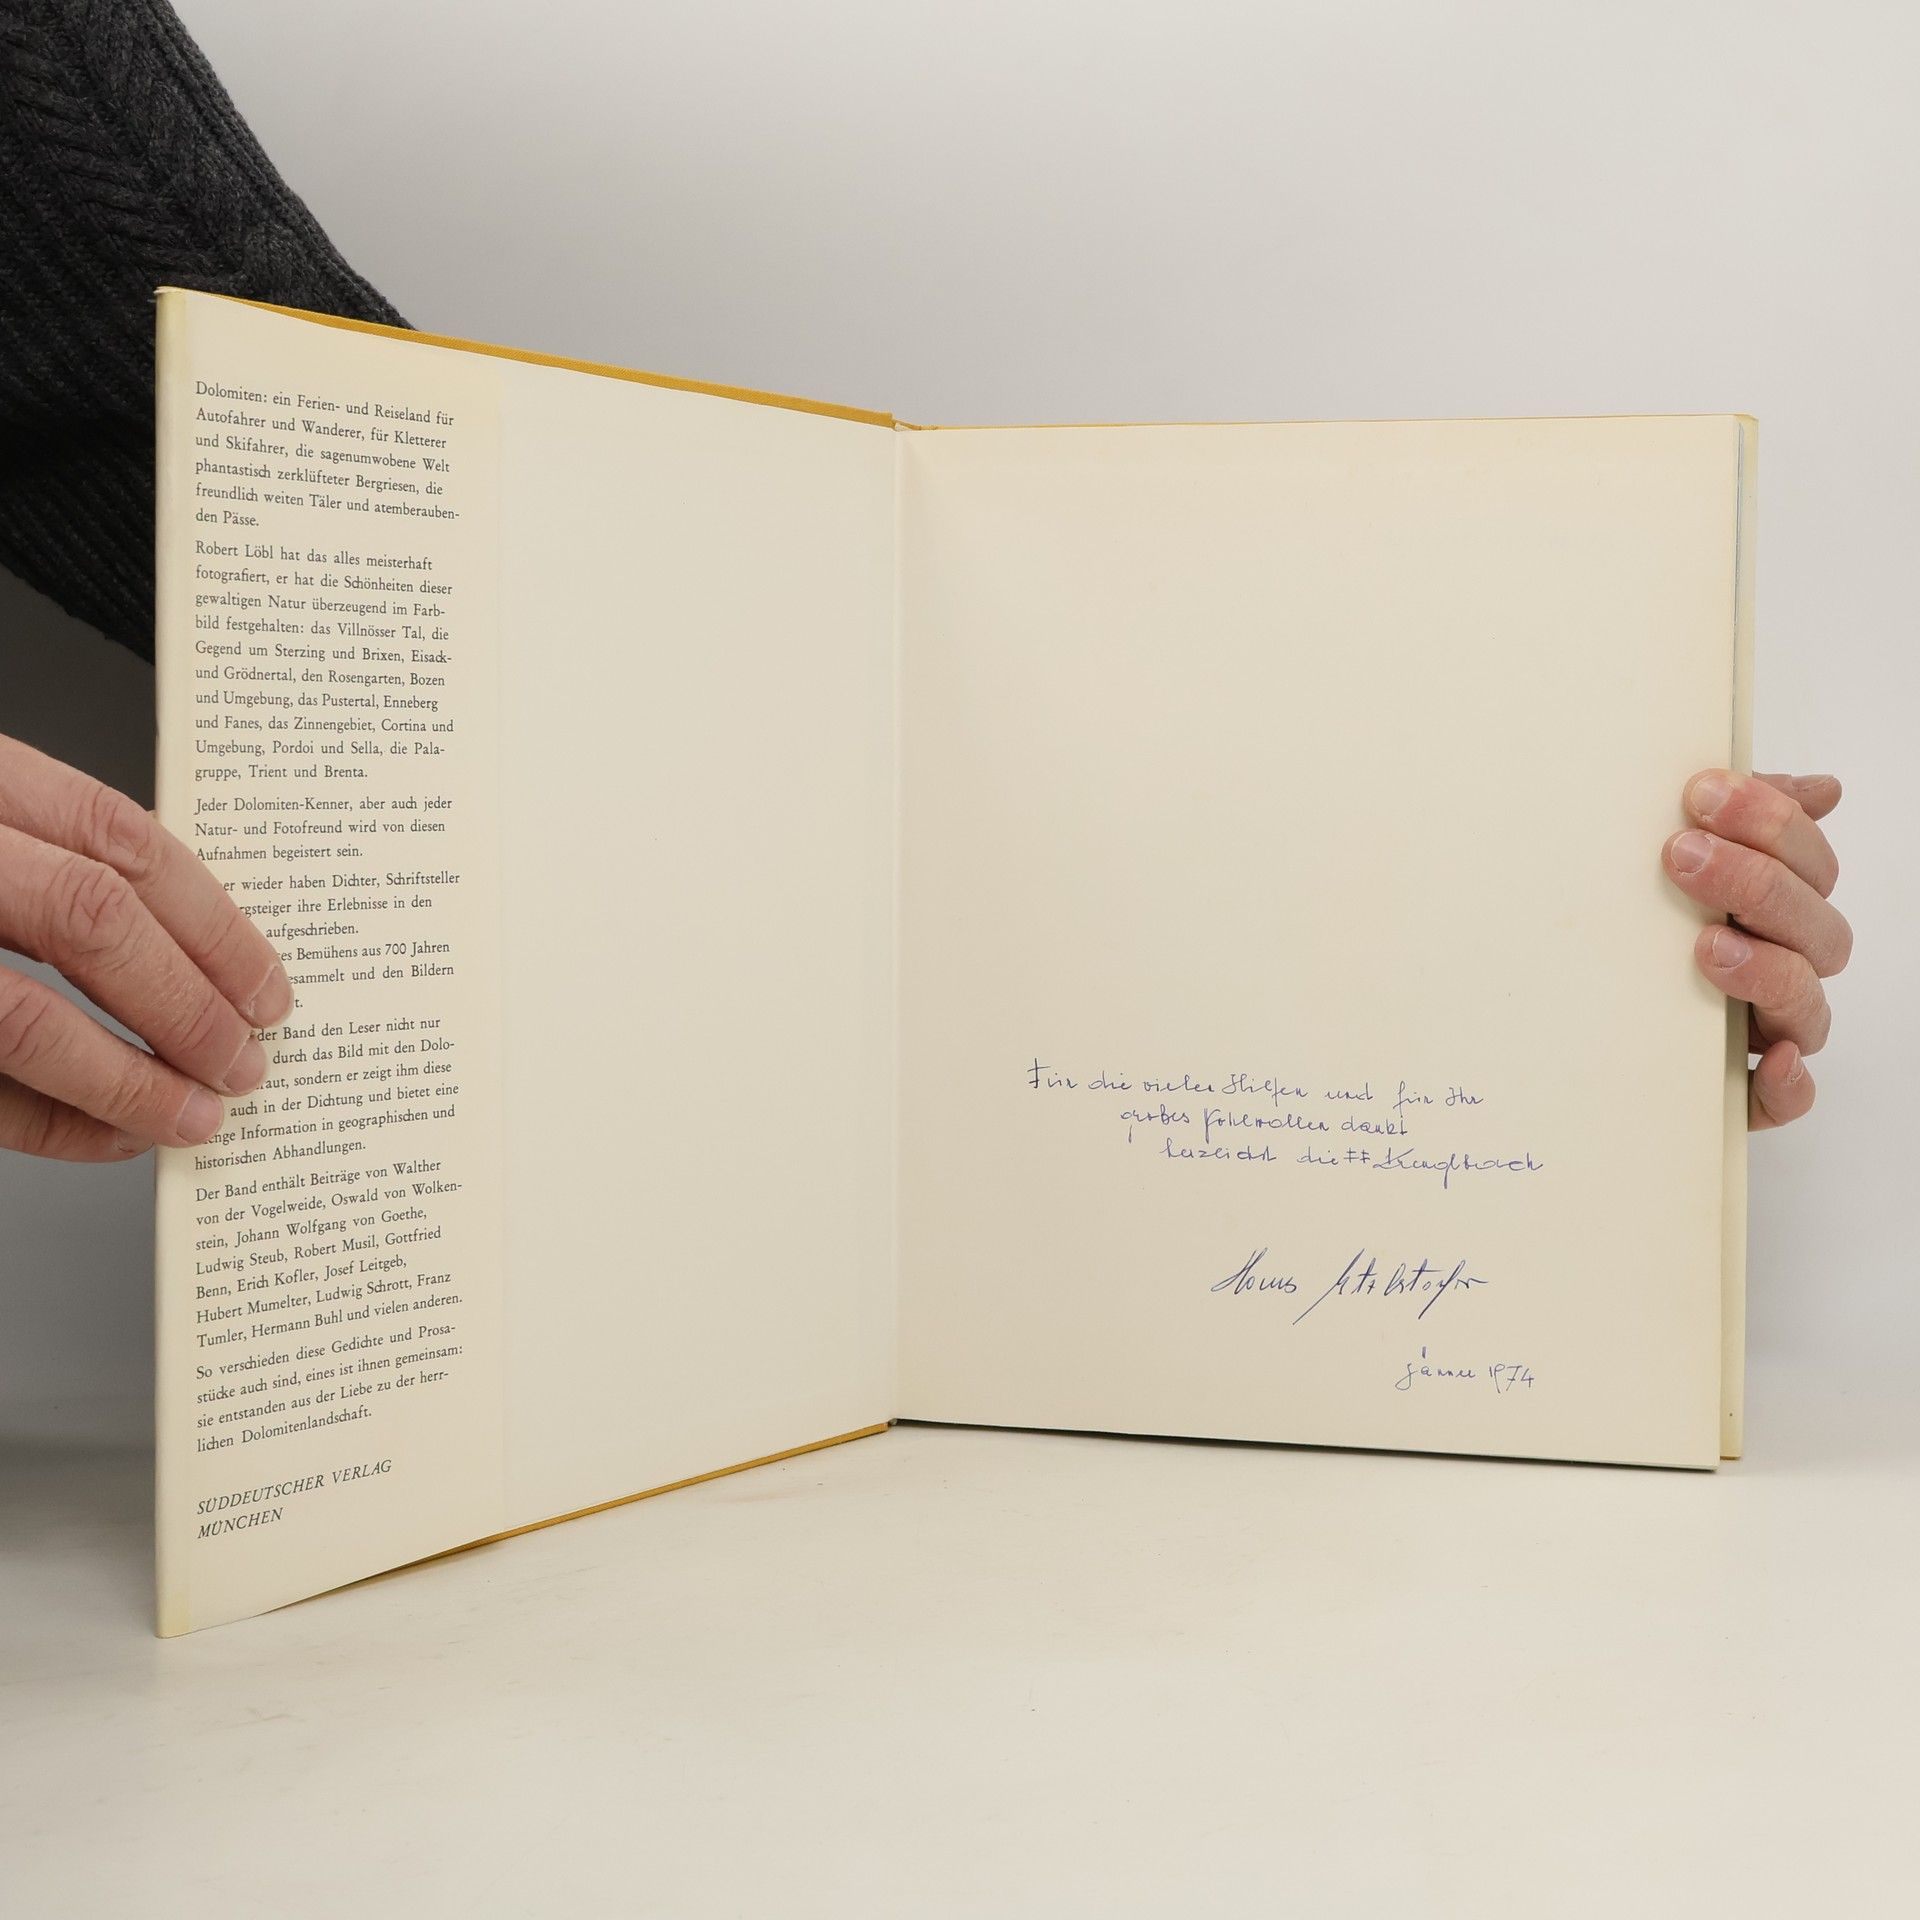 Dolomiten: ein Ferien- und Reiseland für
Autofahrer und Wanderer, für Kletterer
und Skifahrer, die sagenumwobene Welt
phantastisch zerklüfteter Bergriesen, die
freundlich weiten Täler und atemberauben-
den Pässe.
Robert Löbl hat das alles meisterhaft
fotografiert, er hat die Schönheiten dieser
gewaltigen Natur überzeugend im Farb-
bild festgehalten: das Villnösser Tal, die
Gegend um Sterzing und Brixen, Eisack-
und Grödnertal, den Rosengarten, Bozen
und Umgebung, das Pustertal, Enneberg
und Fanes, das Zinnengebiet, Cortina und
Umgebung, Pordoi und Sella, die Pala-
gruppe, Trient und Brenta.
Jeder Dolomiten-Kenner, aber auch jeder
Natur- und Fotofreund wird von diesen
Aufnahmen begeistert sein.
er wieder haben Dichter, Schriftsteller
rgsteiger ihre Erlebnisse in den
aufgeschrieben.
es Bemühens aus 700 Jahren
esammelt und den Bildern
t.
der Band den Leser nicht nur
durch das Bild mit den Dolo-
raut, sondern er zeigt ihm diese
auch in der Dichtung und bietet eine
enge Information in geographischen und
historischen Abhandlungen.
Der Band enthält Beiträge von Walther
von der Vogelweide, Oswald von Wolken-
stein, Johann Wolfgang von Goethe,
Ludwig Steub, Robert Musil, Gottfried
Benn, Erich Kofler, Josef Leitgeb,
Hubert Mumelter, Ludwig Schrott, Franz
Tumler, Hermann Buhl und vielen anderen.
So verschieden diese Gedichte und Prosa-
stücke auch sind, eines ist ihnen gemeinsam:
sie entstanden aus der Liebe zu der herr-
lichen Dolomitenlandschaft.
SÜDDEUTSCHER VERLAG
MÜNCHEN
Für die vielen Hilfen und für Ihr
großes Wohlwollen dankt
herzlichst die FF
Hans
Jänner 1974